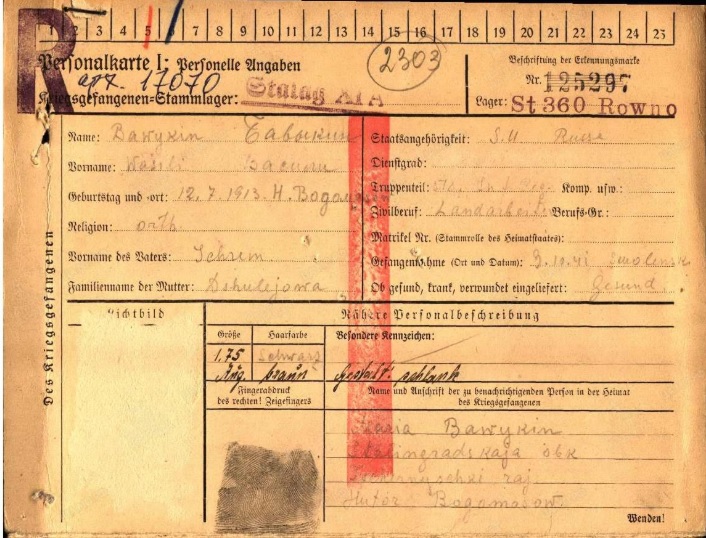 1 2 3 4 5 6 7 8 9 10 11 12 13 14 15 16 17 18 19 20 21 22 23 24 25
R
Personalkarte I: Personelle Angaben
2303
Beschriftung der Erkennungsmarke
17070
Nr. 125297
Kriegsgefangenen-Stammlager: Stalag XI A
Lager: St 360 Rowno
Des Kriegsgefangenen
Name: Bawykin Бавыкин
Staatsangehörigkeit: S.U Russe
Vorname: Wasili Васили
Dienstgrad:
Geburtstag und -ort: 12.7.1913. H.
Truppenteil: Komp. usw.:
Religion: orth
Zivilberuf: Landarbeiter Berufs-Gr.:
Matrikel Nr. (Stammrolle des Heimatstaates):
Vorname des Vaters:
Gefangennahme (Ort und Datum): 3.10.41 Smolensk
Familienname der Mutter: Dshulejowa
Ob gesund, krank, verwundet eingeliefert: Gesund
Lichtbild
Nähere Personalbeschreibung
Größe Haarfarbe Besondere Kennzeichen:
1,75 schwarz
Aug. braun Gestalt: schlank
Fingerabdruck
des rechten! Zeigefingers
Name und Anschrift der zu benachrichtigenden Person in der Heimat
des Kriegsgefangenen
Maria Bawykin
Stalingradskaja obk
raj.
Hutor
Wenden!